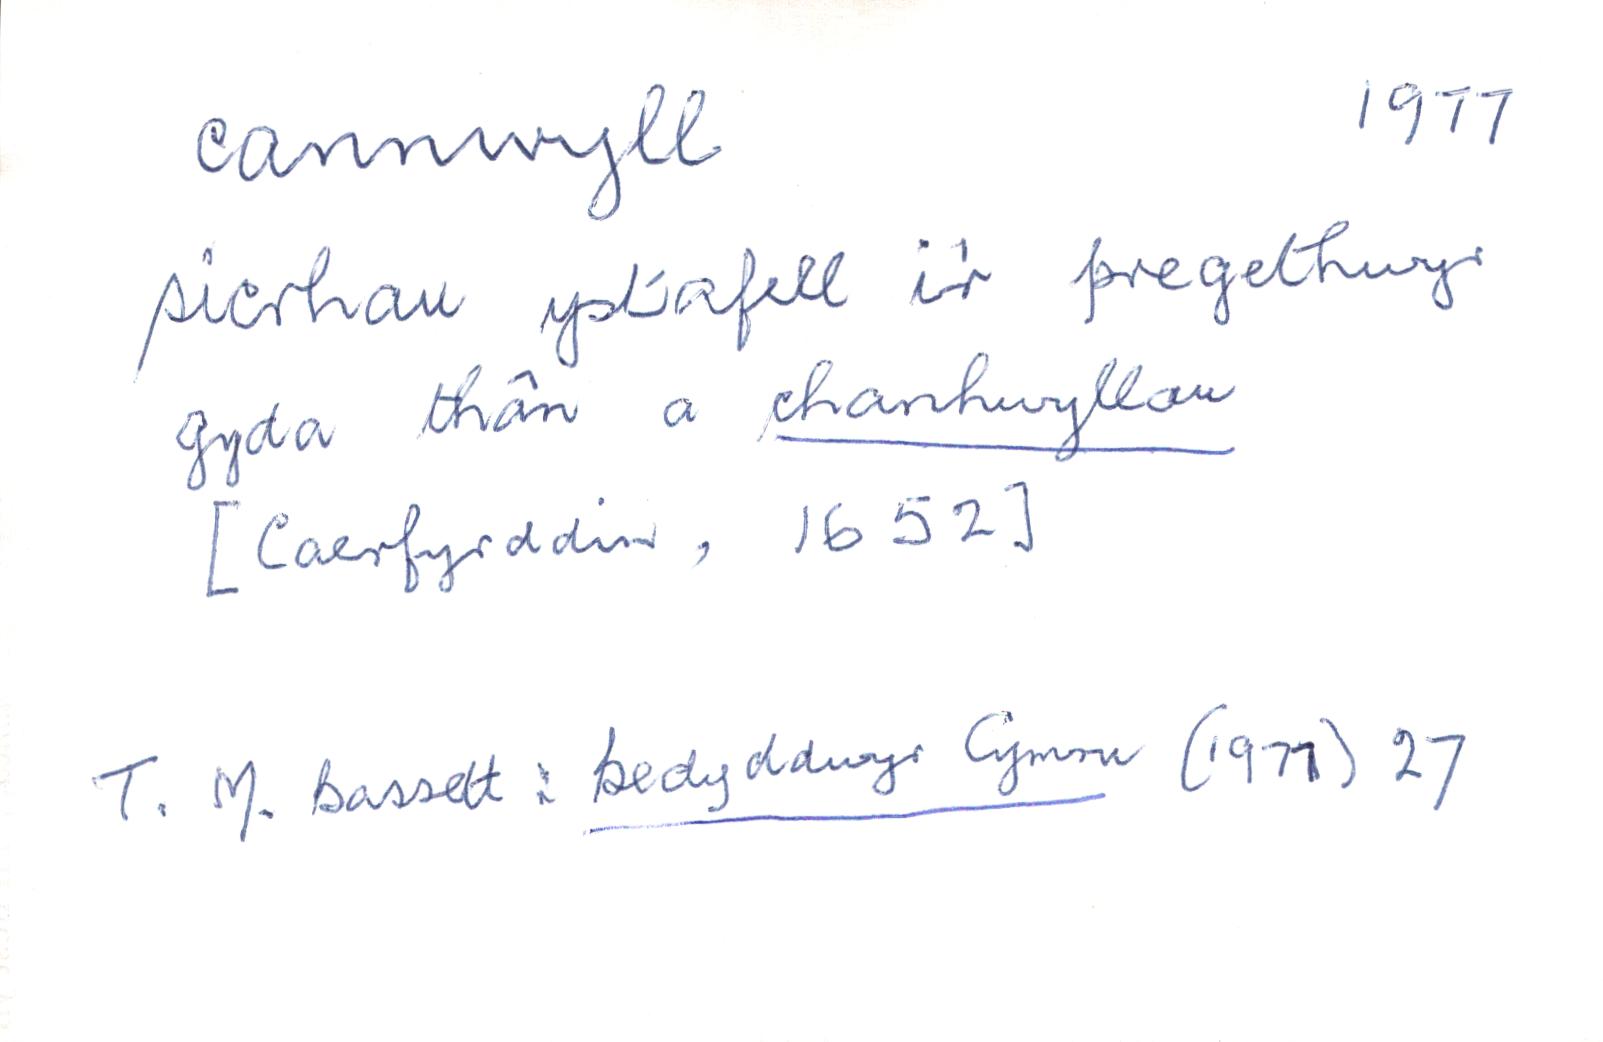 cannwyll 1977
sicrhau ystafell i'r pregethwyr
gyda thân a chanhwyllau
[Caerfyrddin, 1652]
T. M. Bassett : Bedyddwyr Cymru (1977) 27